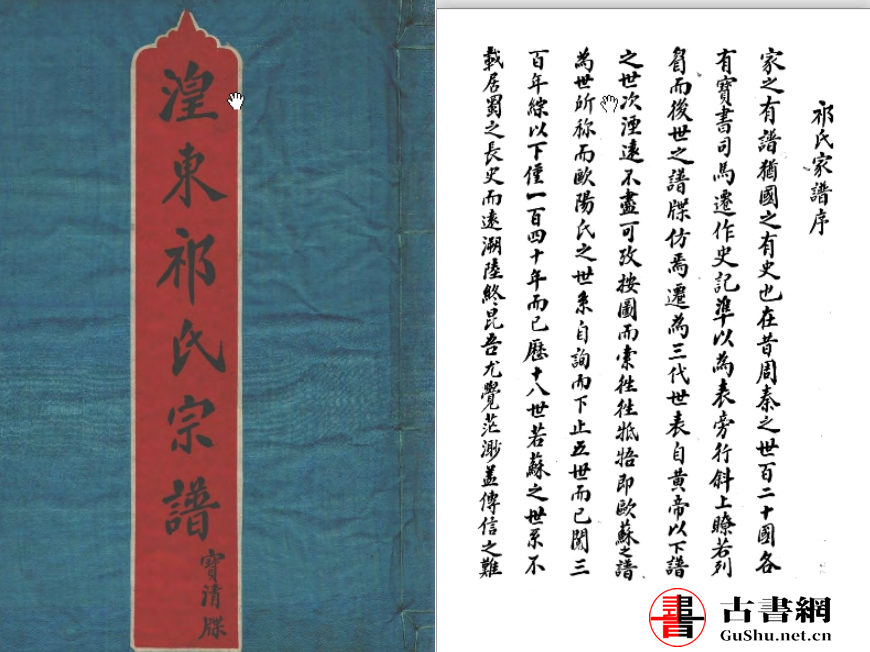 湟東祁氏宗譜
寶清牒
祁氏家譜序
家之有譜猶國之有史也在昔周秦之世百二十國各
有寶書司馬遷作史記準以為表旁行斜上瞭若列
眉而後世之譜牒仿焉遷為三代世表自黃帝以下譜
之世次湮遠不盡可攷按圖而索往往牴牾即歐蘇之譜
為世所称而歐陽氏之世系自詢而下止五世而已閱三
百年綜以下僅一百四十年而已歷十八世若蘇之世系不
載居蜀之長史而遠溯陸終昆吾尤覺茫渺蓋傳信之難
書
古書網
GuShu.net.cn